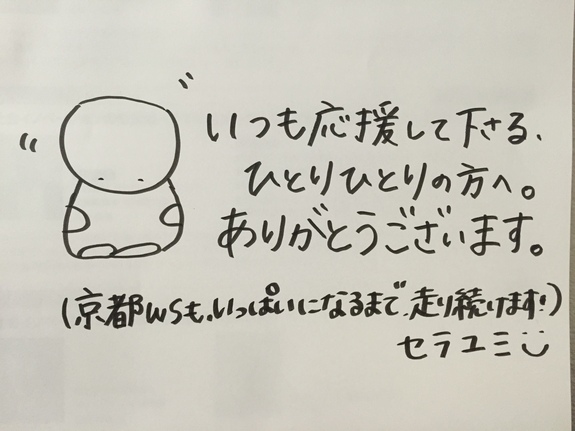 いつも応援して下さる、
ひとりひとりの方へ。
ありがとうございます。
(京都WSも、いっぱいになるまで、走り続けます!)
セラユミ